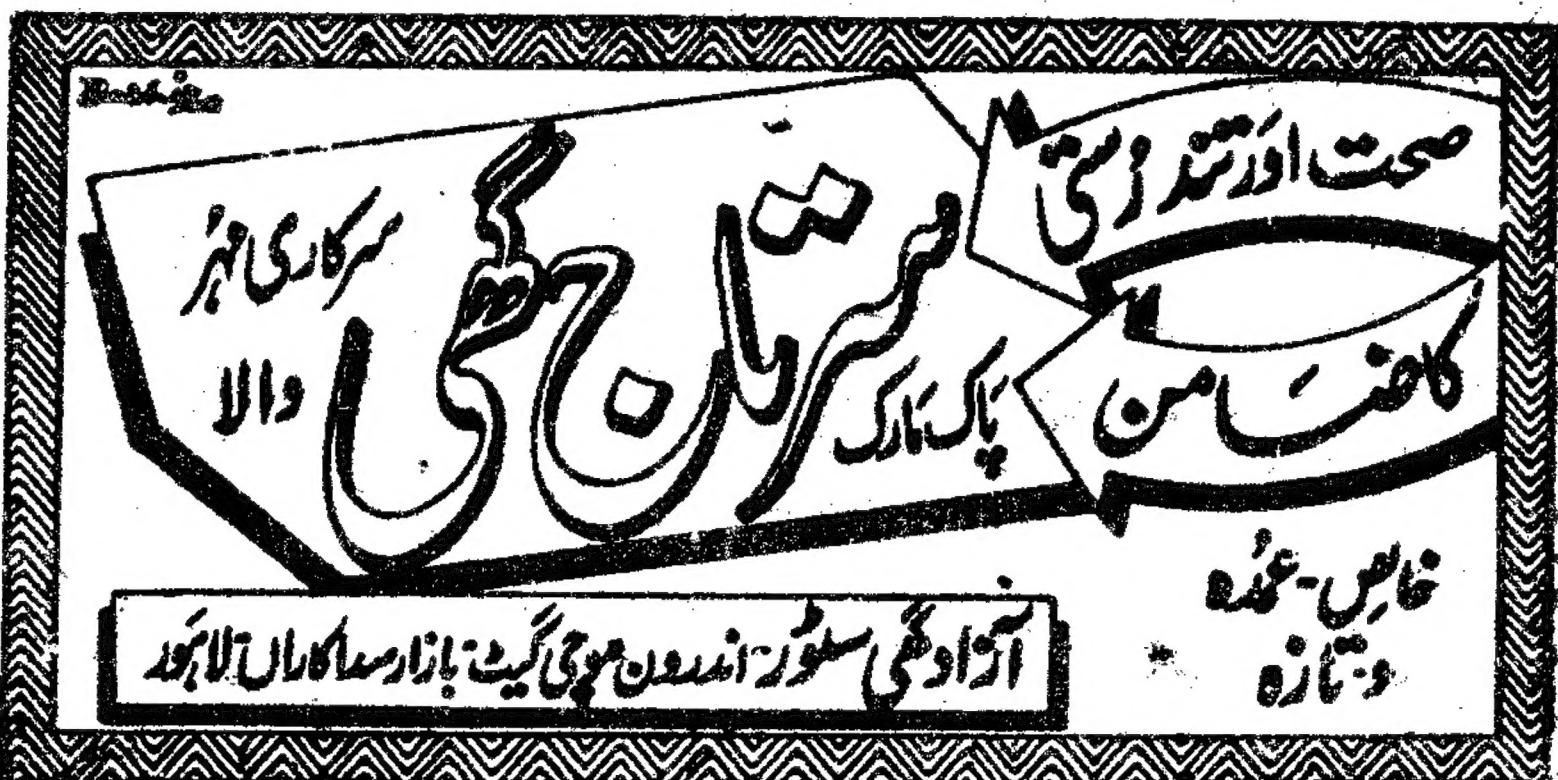 صحت اور تندرستی
کا ضامن
سرتاج گھی
پاک مارک
سرکاری مہر
والا
خالص - عمدہ
و - تازہ
آزاد گھی سٹور - اندرون موچی گیٹ - بازار صداکاراں لاہور